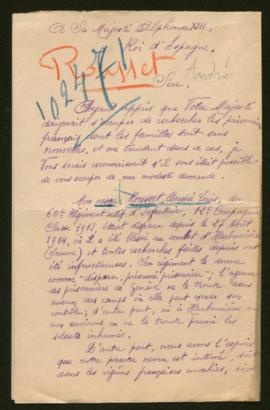 A Sa Majesté Alphonse XIII.
Roi d'Espagne.
Rousset
André
Sire,
10247/1
Ayant appris que Votre Majesté
daignait s'occuper de rechercher les prisonniers
français dont les familles sont sans
nouvelles, et me trouvant dans ce cas, je
Vous serais reconnaissant s'il vous était possible
de vous occuper de ma modeste demande.
Mon neveu Rousset, André Louis, du
60e Régiment actif d'Infanterie, 12e Compagnie
Classe 1913, étant disparu depuis le 24 Août
1914, où il a été blessé au combat d'
(Somme) et toutes recherches faites depuis ont
été infructueuses. Son régiment le donne
comme "disparu, présumé prisonnier", l'agence
des prisonniers de Genève ne le trouve dans
aucun des camps où elle peut exercer son
contrôle; d'autre part, ni à
ni aux environs on ne le trouve parmi les
soldats inhumés.
D'autre part, nous avons l'espoir
que notre pauvre neveu est interné, soit
dans les régions françaises envahies, soit